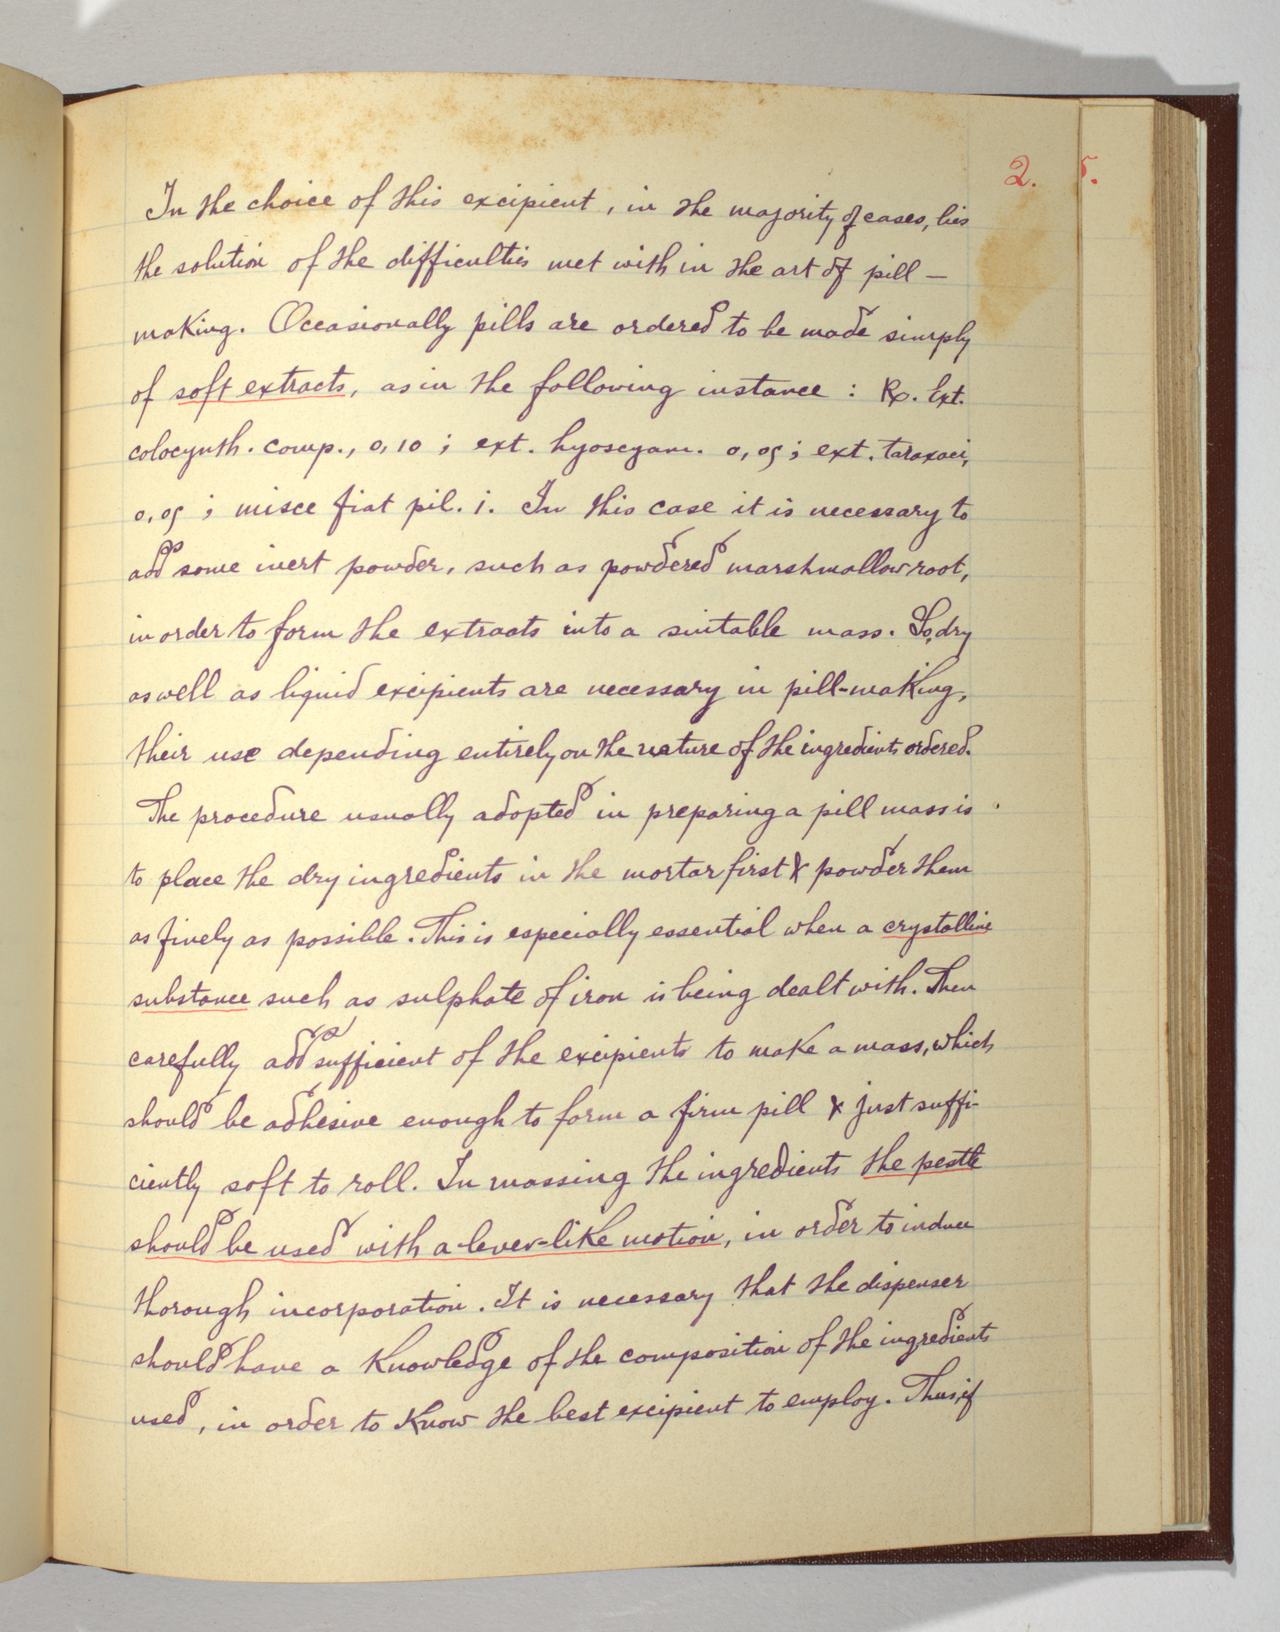 2.
5.
In the choice of this excipient, in the majority of cases, lies
the solution of the difficulties met with in the art of pill-
making. Occasionally pills are ordered to be made simply
of soft extracts, as in the following instance : Rx. Ext.
colocynth. comp., 0,10 ; ext. hyoscyam. 0,05 ; ext. taraxaci,
0,05 ; misce fiat pil. i. In this case it is necessary to
add some inert powder, such as powdered marshmallow root,
in order to form the extracts into a suitable mass. So, dry
as well as liquid excipients are necessary in pill-making,
their use depending entirely on the nature of the ingredients ordered.
The procedure usually adopted in preparing a pill mass is
to place the dry ingredients in the mortar first & powder them
as finely as possible. This is especially essential when a crystalline
substance such as sulphate of iron is being dealt with. Then
carefully add sufficient of the excipients to make a mass, which
should be adhesive enough to form a firm pill & just suffi-
ciently soft to roll. In massing the ingredients the pestle
should be used with a lever-like motion, in order to induce
thorough incorporation. It is necessary that the dispenser
should have a knowledge of the composition of the ingredients
used, in order to know the best excipient to employ. Thus, if